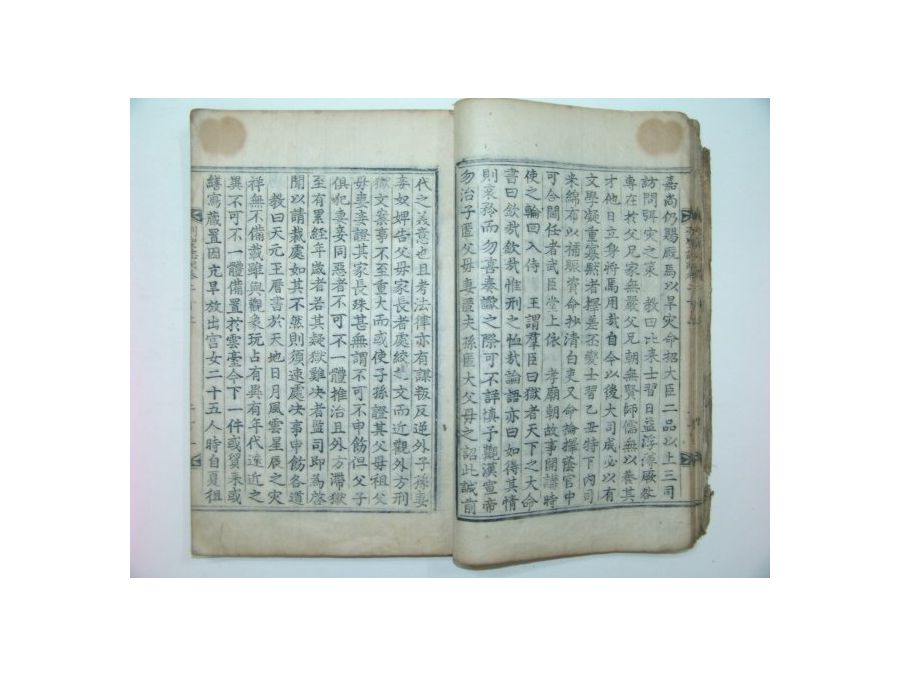 嘉尚仍賜廐馬以旱灾命招大臣二品以上三司
訪問弭灾之策 教曰比来士習日益浮薄厥咎
專在於父兄家無嚴父兄朝無賢師儒無以養其
才他日立身將焉用哉自今以後大司成必以有
文學凝重寡黙者擇差丕變士習乙丑特下内司
米綿布以補賑資命抄清白吏又命掄擇蔭官中
可合閫任者武臣堂上依 孝廟朝故事開講時
使之輪回入侍 王謂羣臣曰獄者天下之大命
書曰欽哉欽哉惟刑之恤哉論語亦曰如得其情
則哀矜而勿喜奏讞之際可不詳慎予觀漢宣帝
勿治子匿父母妻匿夫孫匿大父母之詔此誠前
代之美意也且考法律亦有謀叛反逆外子孫妻
妾奴婢告父母家長者處絞之文而近觀外方刑
獄文案事不至重大而或使子孫證其父母祖父
母妻妾證其家長殊甚無謂不可不申飭但父子
俱犯妻妾同惡者不可不一體推治且外方滯獄
至有累經年歲者若其疑獄難决者監司即為啓
聞以請裁處如其不然則須速處决事申飭各道
教曰天元王曆書於天地日月風雲星辰之灾
祥無不備載雖與觀象玩占有異有年代遠近之
異不可不一體備置於雲臺今下一件或貿来或
繕寫藏置因亢旱放出宫女二十五人時自夏徂